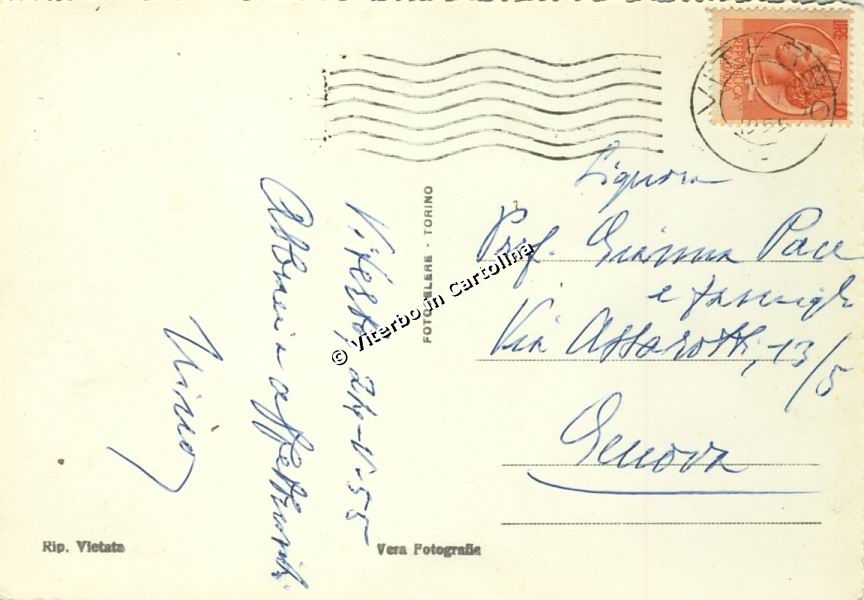 Viterbo, 24-V-55
Abbracci affettuosi
Nino
Rip. Vietata
Vera Fotografia
FOTOCELERE - TORINO
© Viterbo in Cartolina
LIRE 10
VITERBO
1955
Signora
Prof. Gianna Pace
e famiglia
Via Assarotti, 13/5
Genova